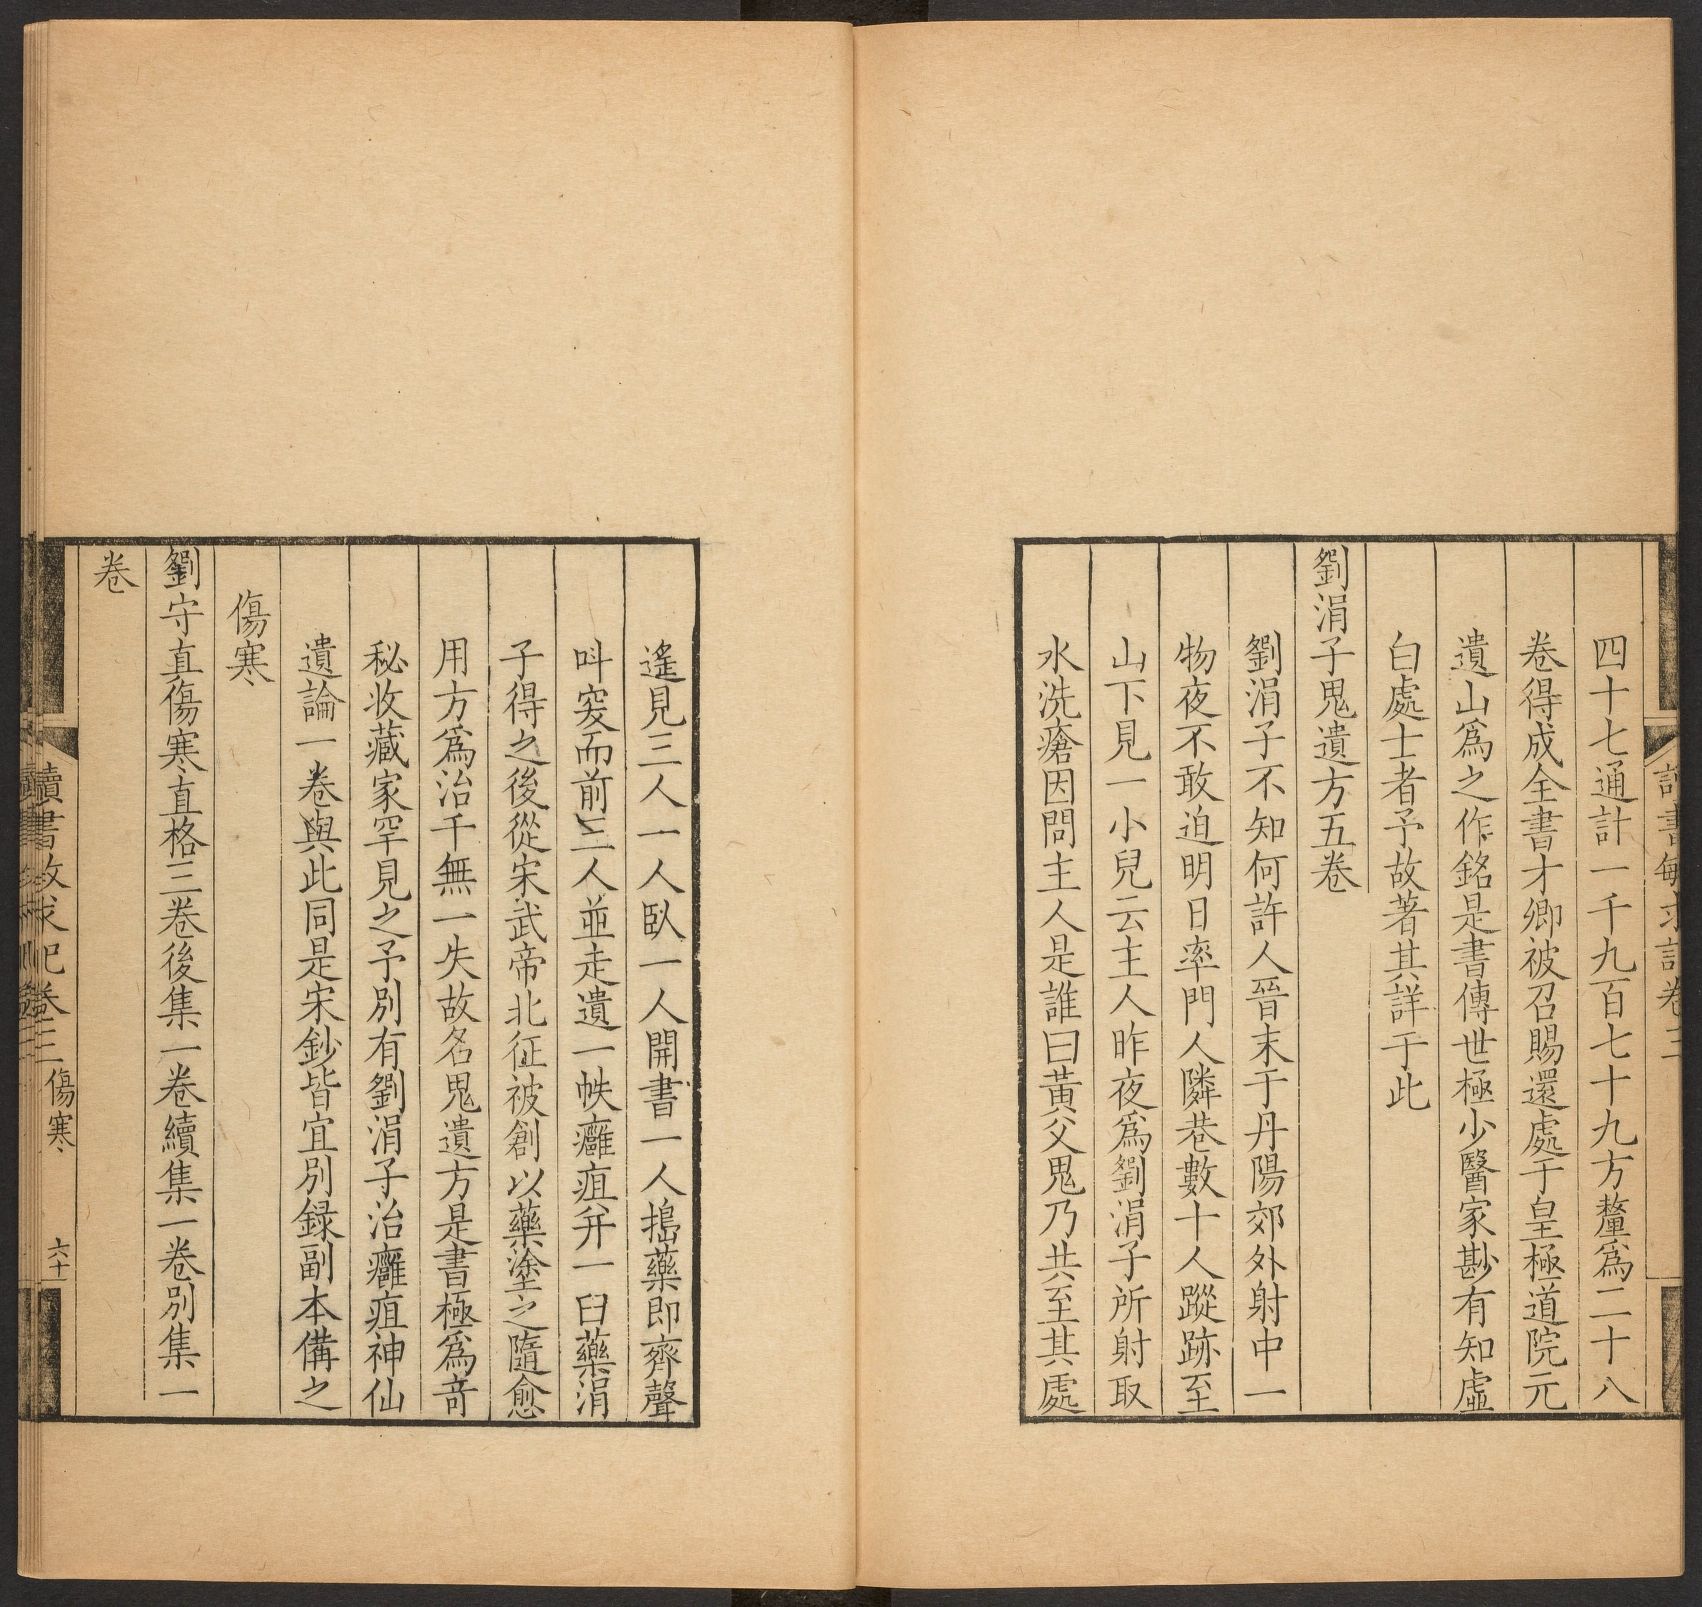 四十七通計一千九百七十九方釐爲二十八
卷得成全書才卿被召賜還處于皇極道院元
遺山爲之作銘是書傳世極少醫家尠有知虛
白處士者予故著其詳于此
劉涓子鬼遺方五卷
劉涓子不知何許人晉末于丹陽郊外射中一
物夜不敢迫明日率門人隣巷數十人蹤跡至
山下見一小兒云主人昨夜爲劉涓子所射取
水洗瘡因問主人是誰曰黃父鬼乃共至其處
遙見三人一人臥一人開書一人搗藥即齊聲
呌突而前三人並走遺一帙癰疽幷一臼藥涓
子得之後從宋武帝北征被創以藥塗之隨愈
用方爲治千無一失故名鬼遺方是書極爲奇
秘收藏家罕見之予別有劉涓子治癰疽神仙
遺論一卷與此同是宋鈔皆宜別録副本備之
傷寒
劉守真傷寒直格三卷後集一卷續集一卷別集一
卷
讀書敏求記卷三 傷寒 六十